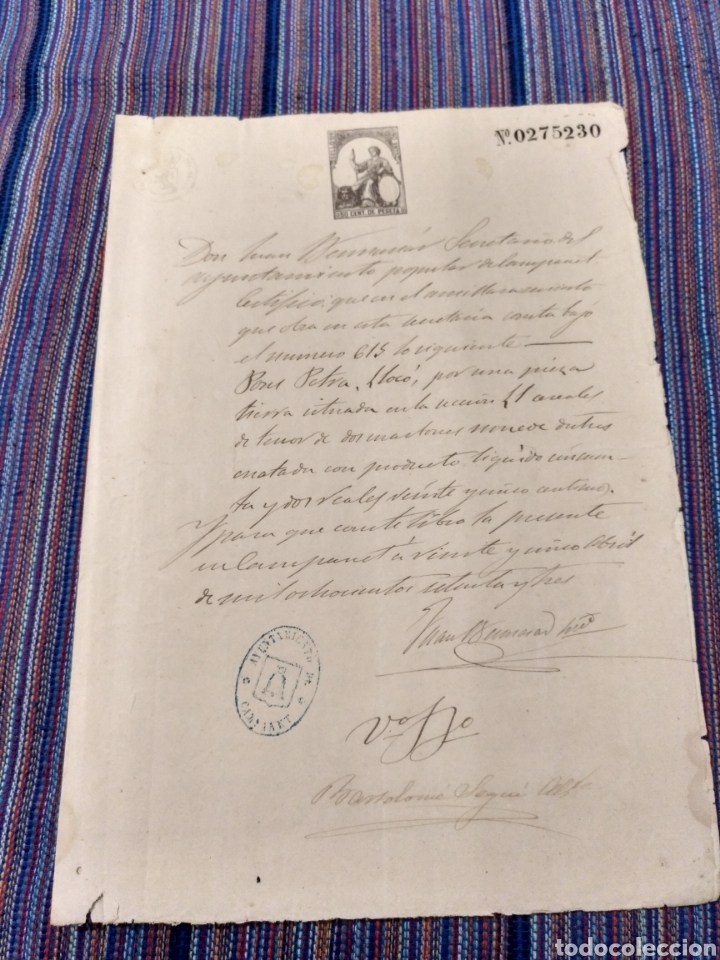 Nº 0275230
50 CENT. DE PESETA
Don Juan Bennasar Secretario del
ayuntamiento popular de Campanet
Certifico: que en el amillaramiento
que obra en esta secretaria consta bajo
el numero 615 lo siguiente
Pons Petra, por una pieza
tierra situada en la seccion
de tenor de dos cuartones nueve destres
con producto liquido cincuen-
ta y dos reales veinte y cinco centimos.
Y para que conste libro la presente
en Campanet á veinte y cinco Abril
de mil ochocientos setenta y tres
Juan Bennasar Srio
AYUNTAMIENTO DE
CAMPANET
Vo Bo
Bartolomé Seguí Alde
todocoleccion